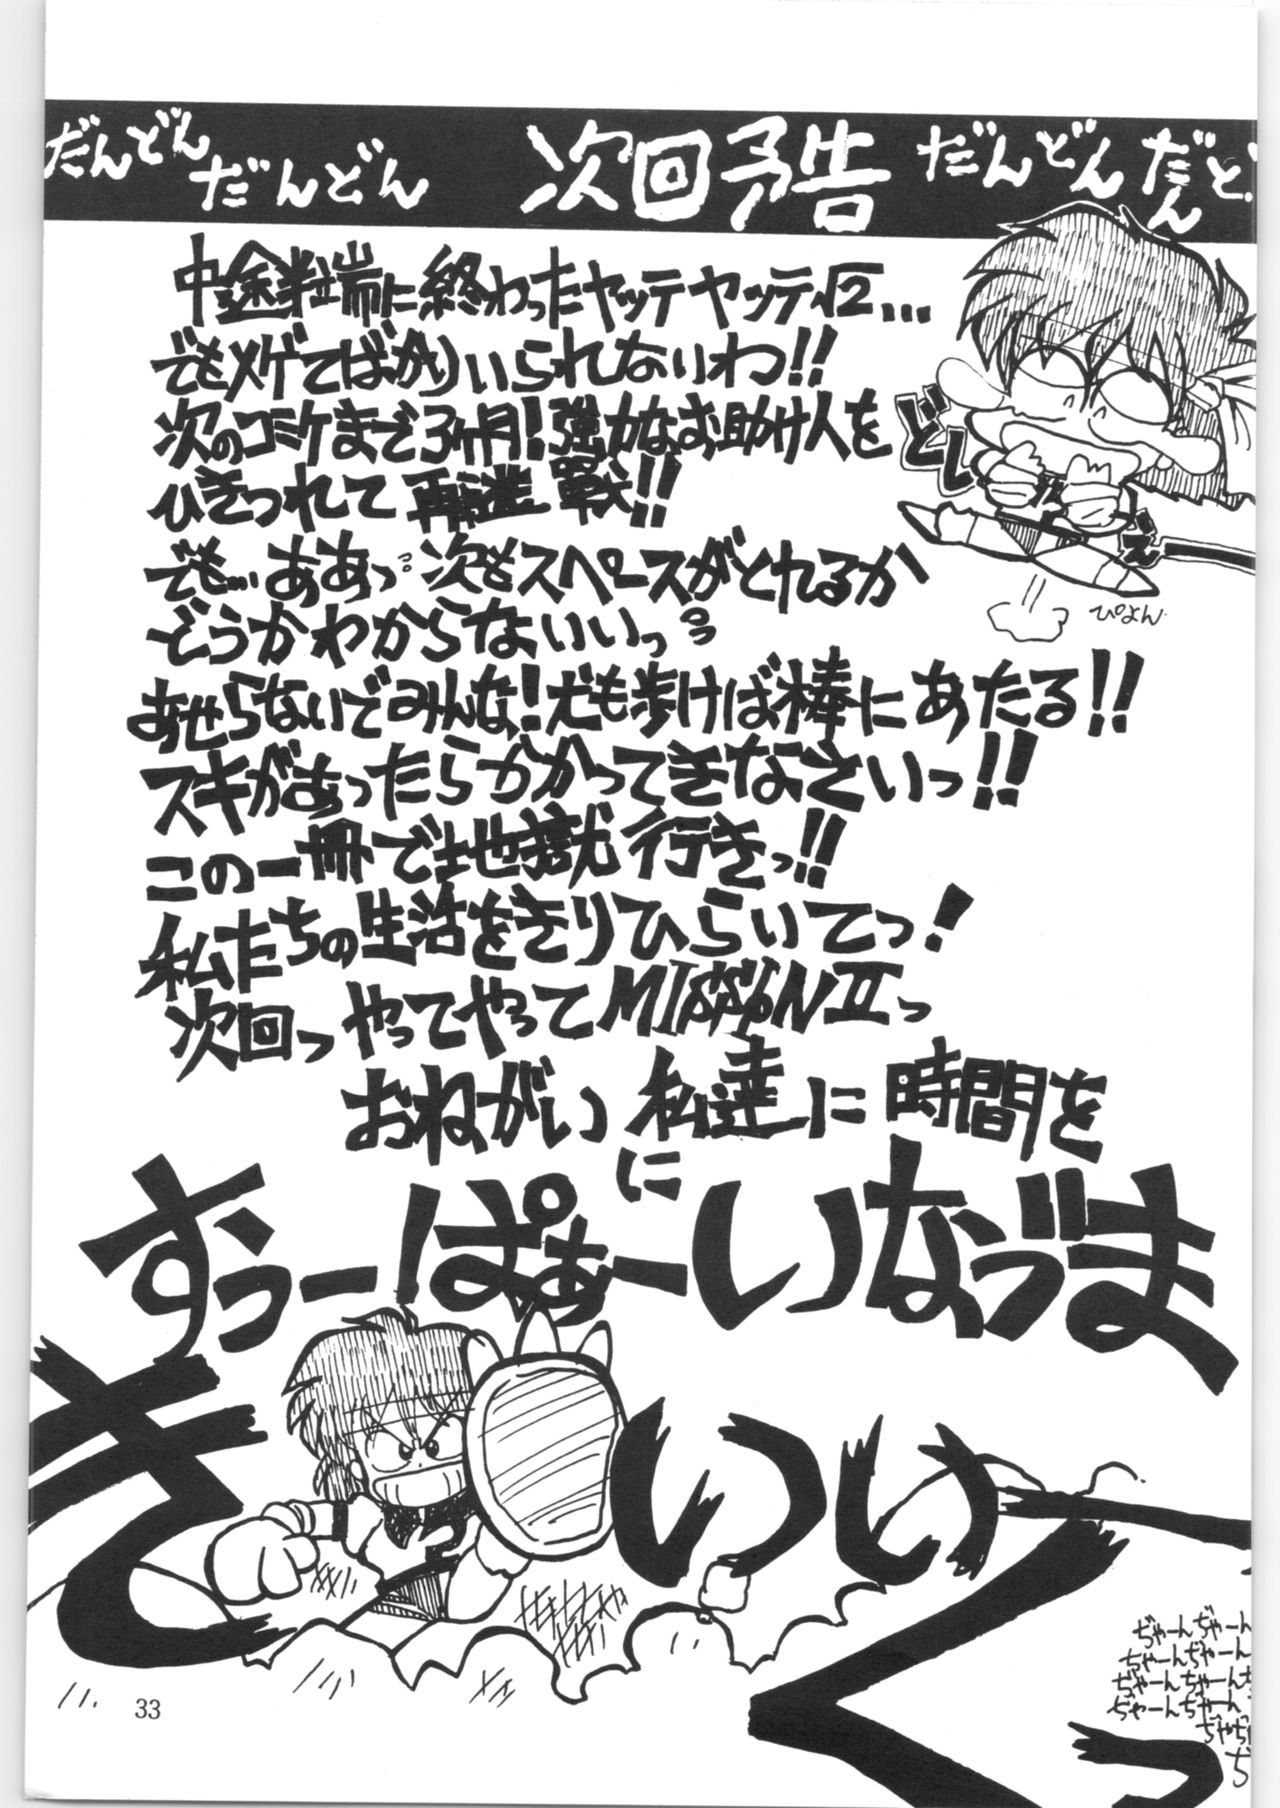 だんどん だんどん 次回予告 だんどん だんど
中途半端に終わったヤッテヤッテ√2...
でもメゲてばかりいられないわ!!
次のコミケまで3ヶ月!強力なお助け人を
ひきつれて再進戦!!
でも…ああっ 次もスペースがとれるか
どうかわからないいっ
あせらないでみんな!犬も歩けば棒にあたる!!
スキがあったらかかってきなさいっ!!
この一冊で地獄行きっ!!
私たちの生活をきりひらいてっ!
次回っ やってやってMISSION IIっ
おねがい 私達に時間を
に
すっーぱぁーいなづま
きいいくっ
ぴよん
ぢゃーんぢゃーん
ぢゃーんぢゃーん
ぢゃーんぢゃーん
ぢゃーんぢゃーん
33